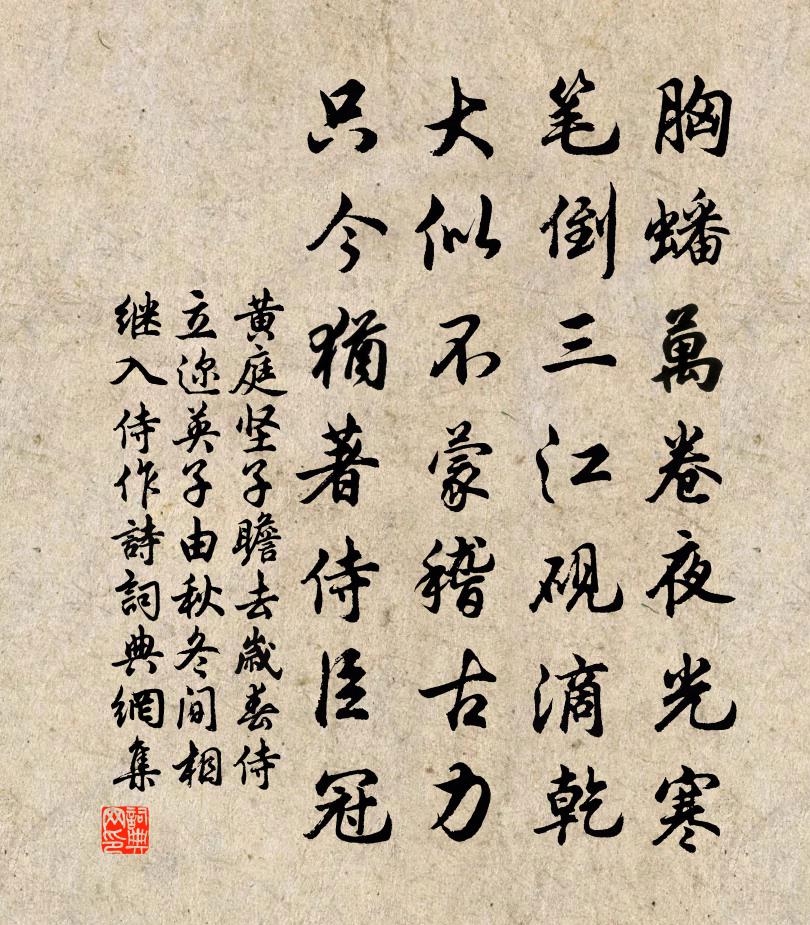 胸蟠萬卷夜光寒
笔倒三江砚滴乾
大似不蒙稽古力
只今猶著侍臣冠
黄庭坚子瞻去歲春侍
立迩英子由秋冬间相
继入侍作詩詞典網集
詞典
网印